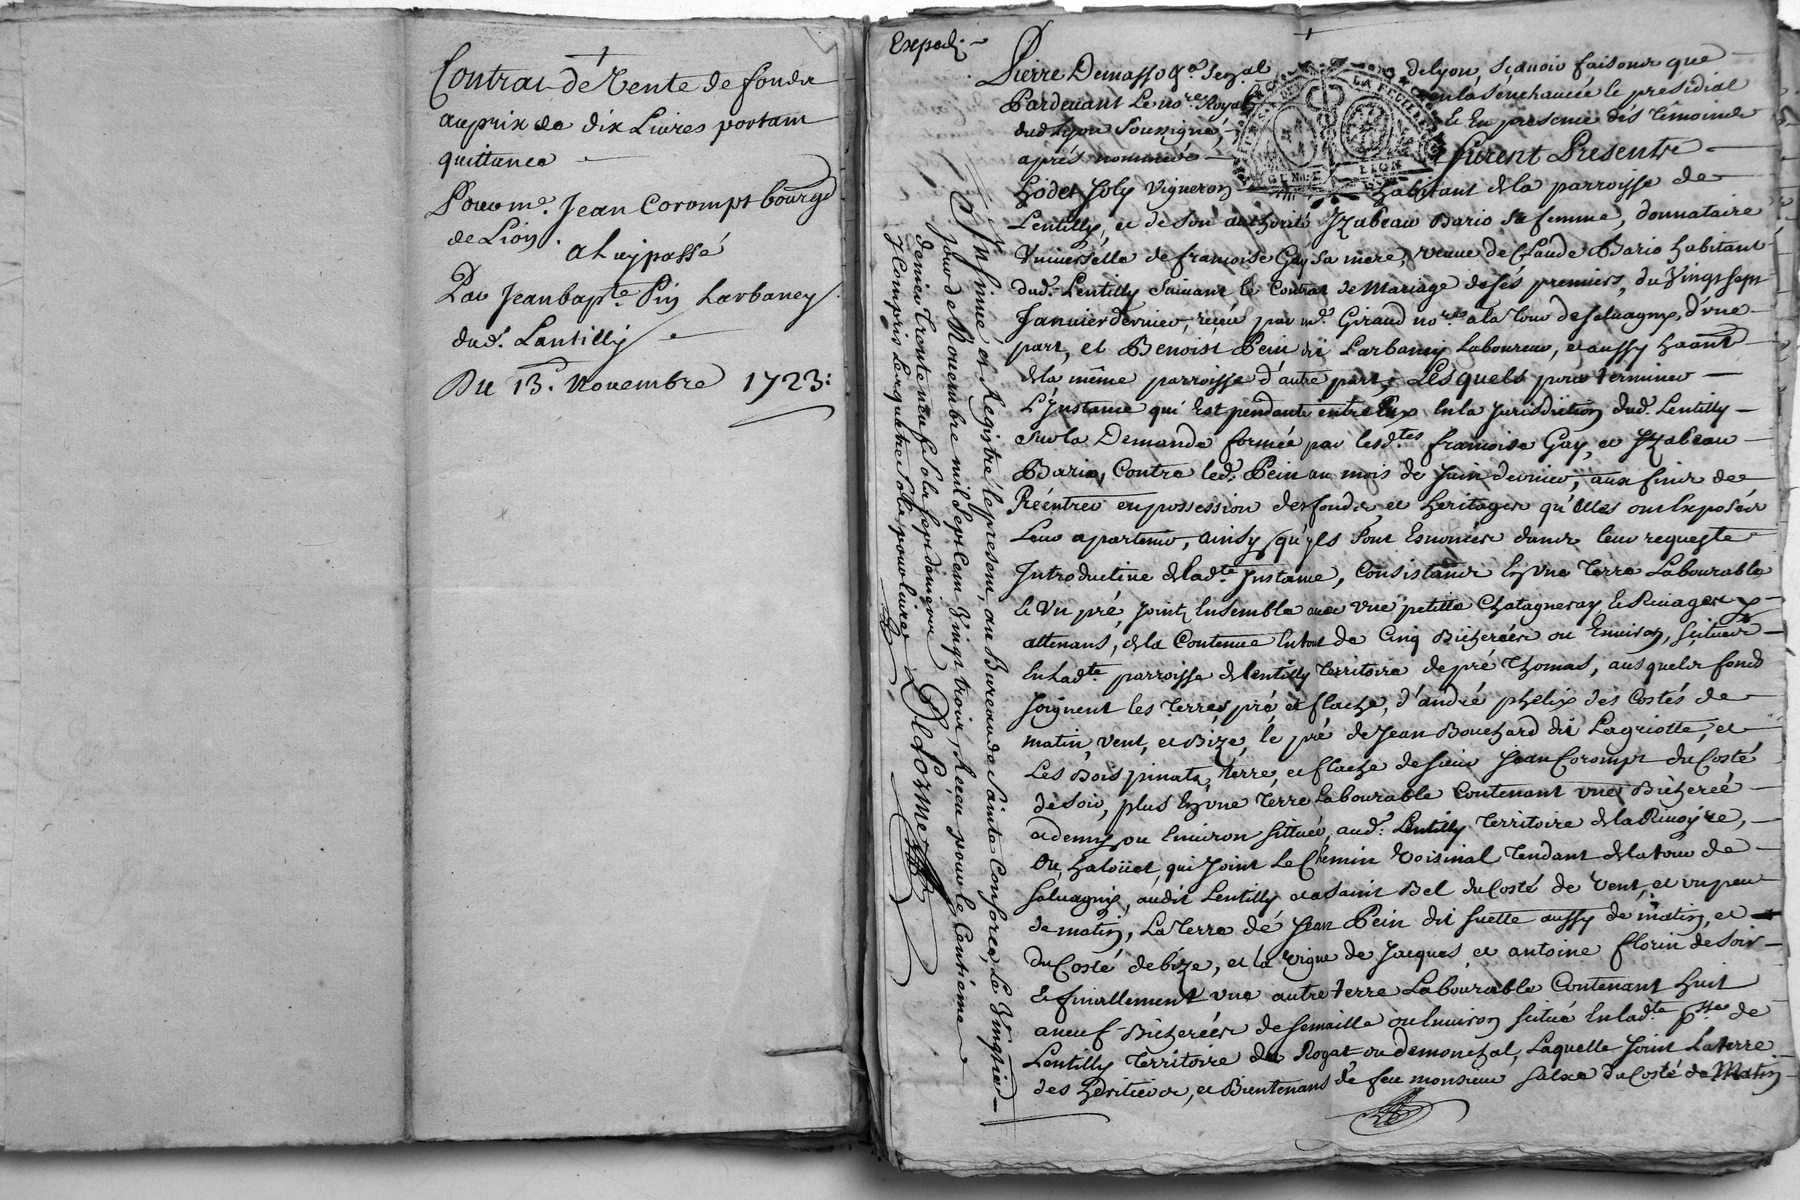 Contrat de Vente de fonds
au prix de dix Livres portant
quittance
Pour me. Jean Corompt bourgs
de Lion
a luy passé
Par Jean bapte. Pin Larbaney
dud. Lantilly
Du 13. Novembre 1723:
Expedi.
Pierre Demasso de Lyon, Sçavoir faisons que
Pardevant Le nore. Royal en la Senechaucée le presidial
dud. Lyon Soussigné, Et En presence des témoins
aprés nommés furent Presents
Joly Vigneron habitant de la parroisse de
Lentilly, et de son authorité Izabeau Bario sa femme, donnataire
Universelle de francoise Gay sa mere, veuve de Claude Bario habitant
dud. Lentilly Suivant le Contrat de Mariage desés premiers, du Vingt sept
Janvier dernier, receu par me. Giraud nore. a la Tour de Salvagny, d'vne
part, et Benoist Pein dit Larbanny Laboureur, et aussy habant.
de la même parroisse d'autre part, Lesquels pour terminer
L'Instance qui Est pendante entre Eux En la Jurisdiction dud. Lentilly
Sur la Demande formée par lesdtes. francoise Gay, et Izabeau
Bario, Contre led. Pein au mois de Juin dernier, aux fins de
Réentrer en possession des fonds, et heritages qu'Elles ont Exposés
Leur apartenir, ainsy qu'ils Sont Enoncés dans leur requeste
Introductive de ladte. Instance, Consistants En vne Terre Labourable
Et Vn pré, Joint Ensemble avec vne petitte Chatagneray, et Rivages
attenans, de la Contenue En tout de Cinq Bicherées ou Environ, scituées
En ladte. parroisse de Lentilly Territoire de pré Thomas, ausquels fonds
Joignent les Terres, pré et flache, d'andré phelix des Costés de
matin, vent, et Bize, le pré de Jean Bouchard dit Lagriotte, et
Les Bois pinata, terre, et flache de sieur Jean Corompt du Costé
de soir, plus En vne Terre Labourable Contenant vne Bicherée
et demy ou Environ Sittuée, aud. Lentilly Territoire de la Rivoire,
Ou halouet, qui Joint Le Chemin Voisinal Tendant de la tour de
Salvagny, audit Lentilly et a Saint Bel du Costé de Vent, et vn peu
de matin, La Terre de Jean Pein dit fuette aussy de matin, et
du Costé de bize, et la vigne de Jacques et antoine florin de soir
Et finallement vne autre terre Labourable Contenant huit
a neuf Bicherées de semaille ou Environ Scitué En ladte. psse. de
Lentilly Territoire du Rogat ou demonchal, Laquelle Joint La terre
des heritiers, et Bientenans de feu monsieur du Costé de Matin
Insinué et Registré le present, au Bureau de Sainte Consorce, Le Vingtieme
Jour de Novembre mil Sept Cent Vingt trois, Receu pour le Centieme
denier trente neuf sols sept deniers
y Compris Les quatre sols pour livre
Deldorme